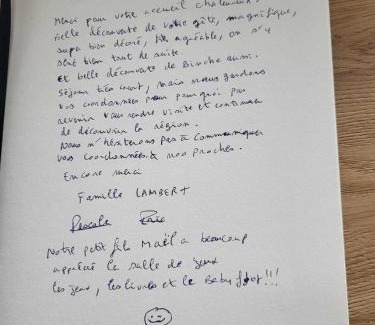 Merci pour votre accueil chaleureux.
Belle découverte de votre gîte, magnifique,
super bien décoré, très agréable, on s'y
sent bien tout de suite.
Et belle découverte de Binche aussi.
Séjour très court, mais nous gardons
vos coordonnées pour pourquoi pas
revenir vous rendre visite et continuer
de découvrir la région.
Nous n'hésiterons pas à communiquer
vos coordonnées à nos proches.
Encore merci
Famille LAMBERT
Pascale Eric
Notre petit fils Maël a beaucoup
apprécié la salle de jeux
les jeux, les livres et le Baby foot!!!